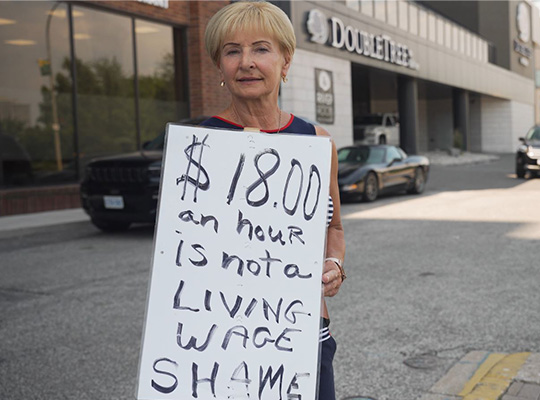 DOUBLETREE
$18.00
an hour
is not a
LIVING
WAGE
SHAME